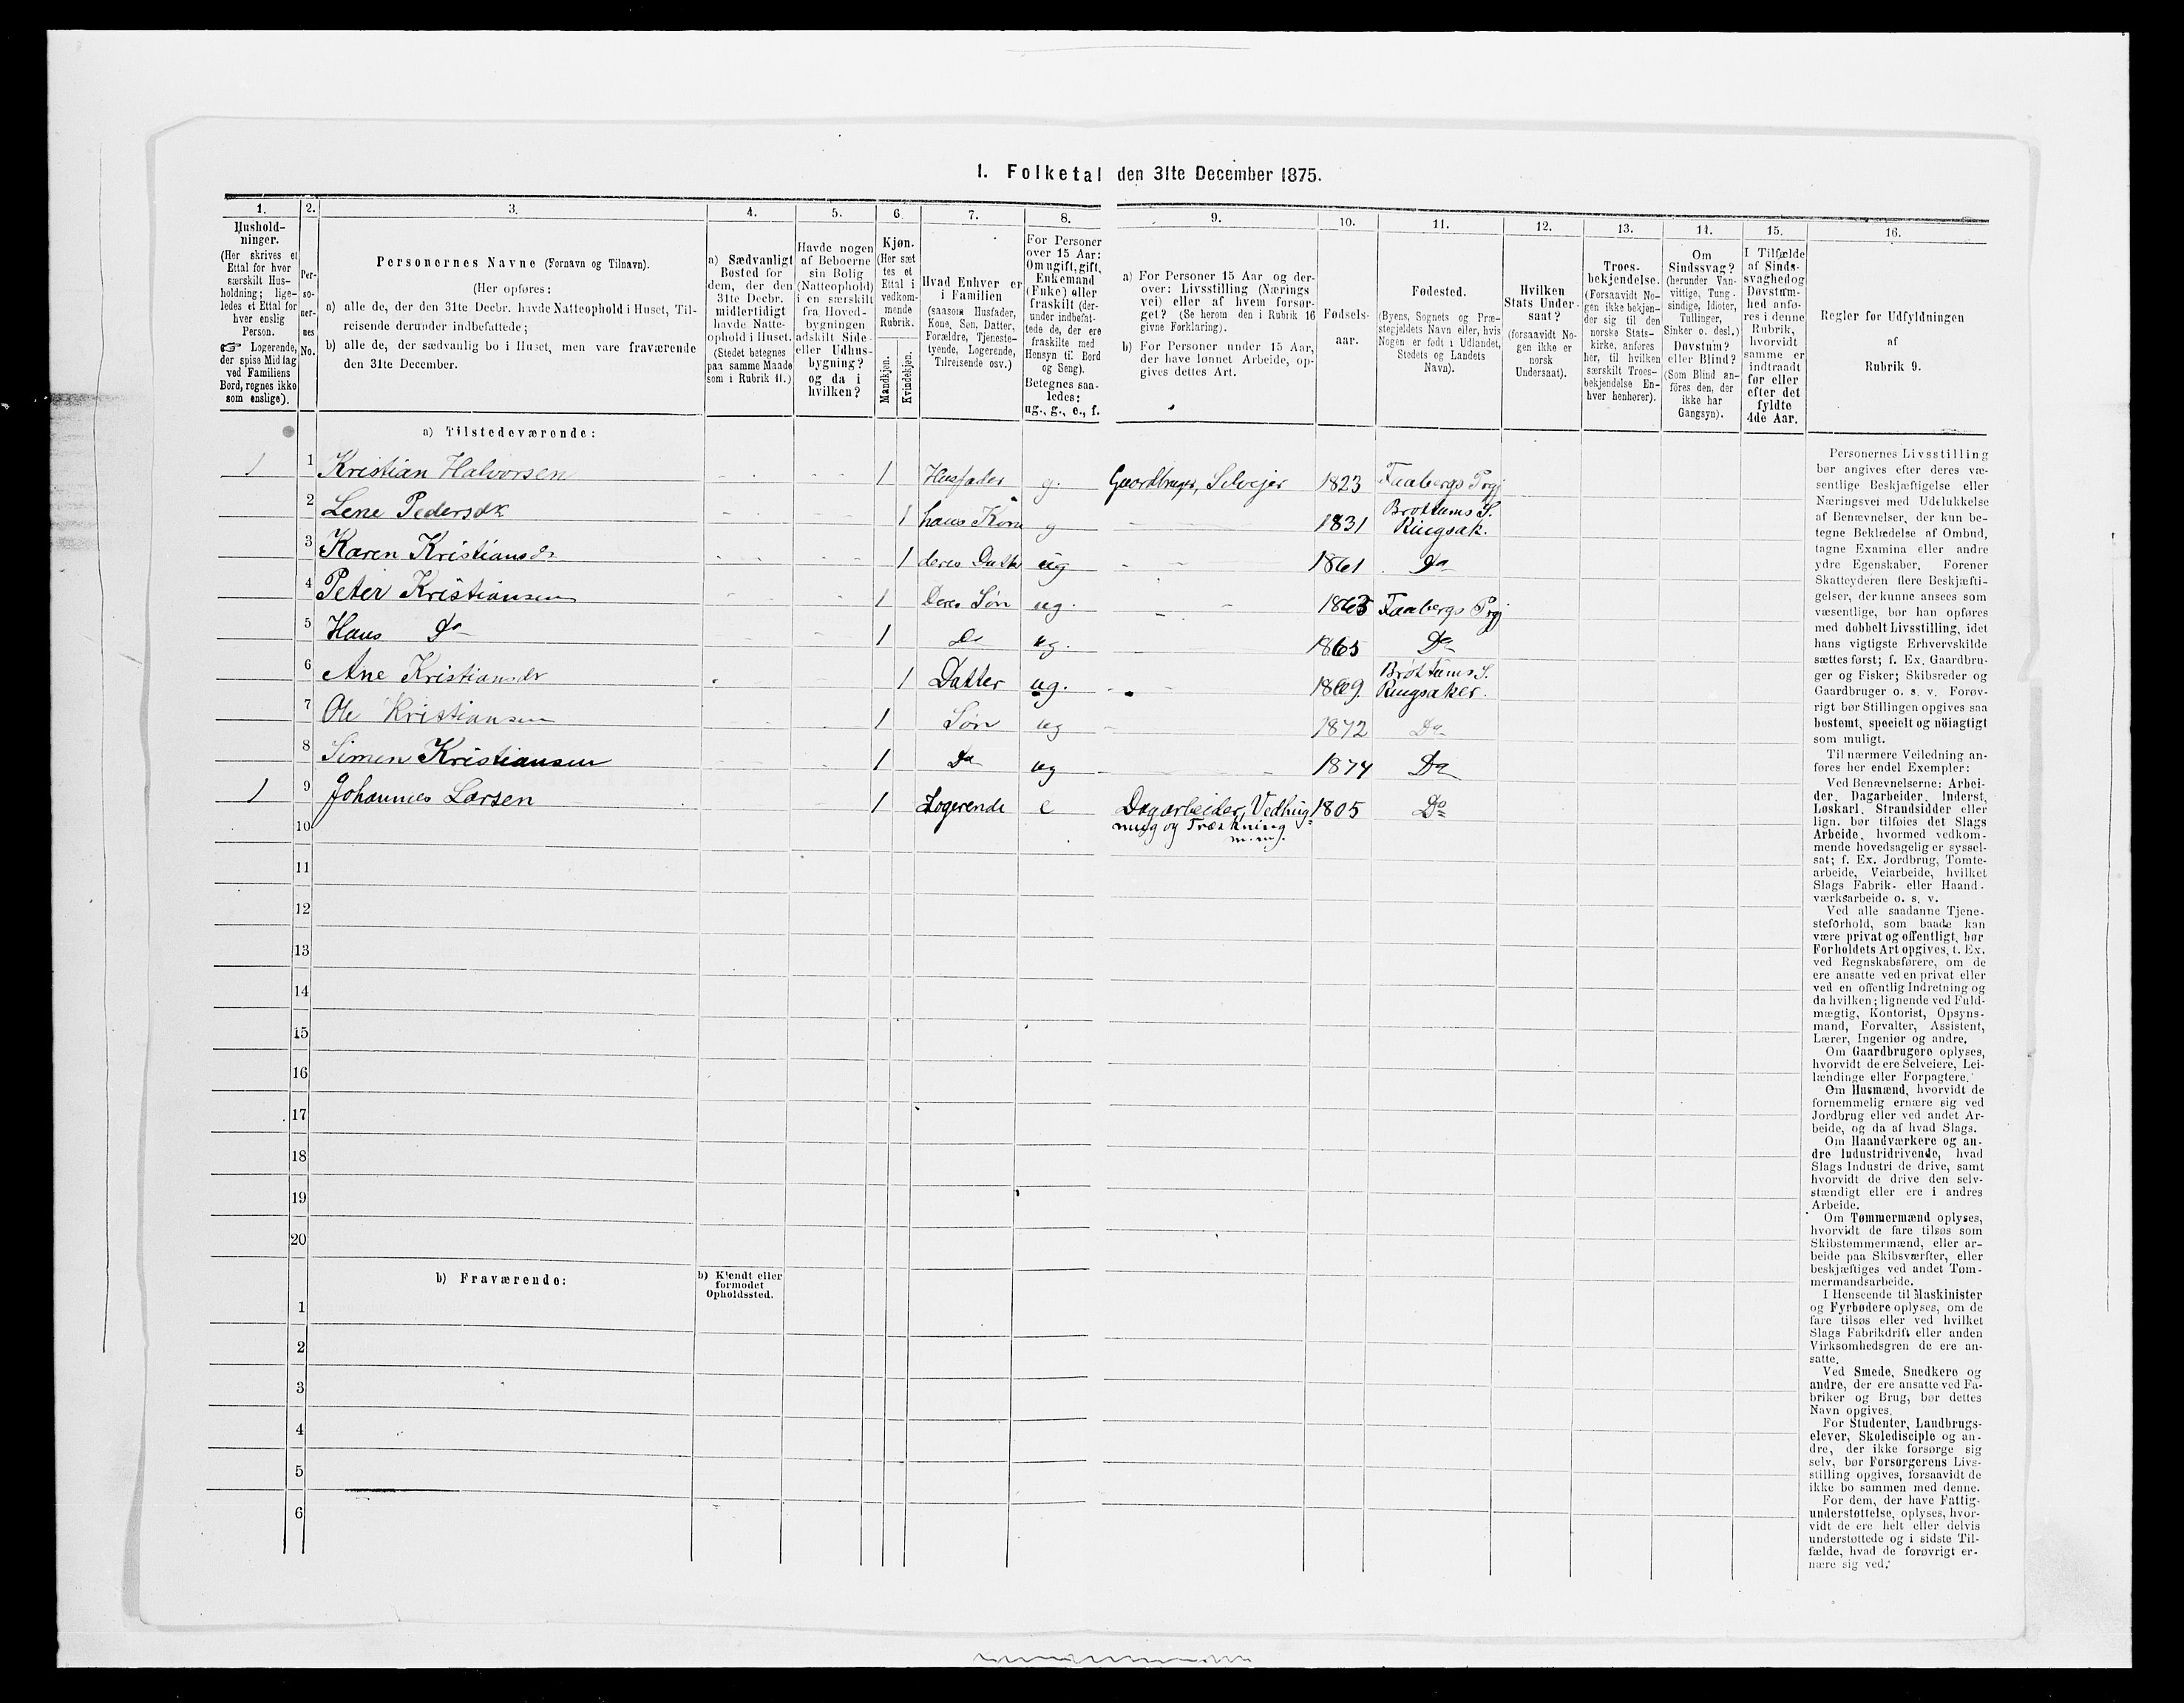 1. Folketal den 31te December 1875.
1.
Hushold-
ninger.
(Her skrives et
Ettal for hver
særskilt Hus-
holdning; lige-
ledes et Ettal for
hver enslig
Person.
☞ Logerende,
der spise Middag
ved Familiens
Bord, regnes ikke
som enslige).
2.
Per-
so-
ner-
nes
No.
3.
Personernes Navne (Fornavn og Tilnavn).
(Her opføres:
a) alle de, der den 31te Decbr. havde Natteophold i Huset, Til-
reisende derunder indbefattede;
b) alle de, der sædvanlig bo i Huset, men vare fraværende
den 31te December.
4.
a) Sædvanligt
Bosted for
dem, der den
31te Decbr.
midlertidigt
havde Natte-
ophold i Huset.
(Stedet betegnes
paa samme Maade
som i Rubrik 11.)
5.
Havde nogen
af Beboerne
sin Bolig
(Natteophold)
i en særskilt
fra Hoved-
bygningen
adskilt Side-
eller Udhus-
bygning?
og da i
hvilken?
6
Kjøn.
(Her sæt
tes et
Ettal i
vedkom-
mende
Rubrik.
Mandkjøn.
Kvindekjøn.
7.
Hvad Enhver er
i Familien
(saasom Husfader,
Kone, Søn, Datter,
Forældre, Tjeneste-
tyende, Logerende,
Tilreisende osv.)
8.
For Personer
over 15 Aar:
Om ugift, gift,
Enkemand
(Enke) eller
fraskilt (der-
under indbefat-
tede de, der ere
fraskilte med
Hensyn til Bord
og Seng).
Betegnes saa-
ledes:
ug., g., e., f.
9.
a) For Personer 15 Aar og der-
over: Livsstilling (Nærings
vei) eller af hvem forsør-
get? (Se herom den i Rubrik 16
givne Forklaring).
b) For Personer under 15 Aar,
der have lønnet Arbeide, op-
gives dettes Art.
10.
Fødsels-
aar.
11.
Fødested.
(Byens, Sognets og Præ-
stegjeldets Navn eller, hvis
Nogen er født i Udlandet,
Stedets og Landets
Navn).
12.
Hvilken
Stats Under-
saat?
(forsaavidt No-
gen ikke er
norsk
Undersaat).
13.
Troes-
bekjendelse.
(Forsaavidt No-
gen ikke bekjen-
der sig til den
norske Stats-
kirke, anføres
her, til hvilken
særskilt Troes-
bekjendelse En-
hver henhører).
14.
Om
Sindssvag?
(herunder Van-
vittige, Tung-
sindige, Idioter,
Tullinger,
Sinker o. desl.)
Døvstum?
eller Blind?
(Som Blind an-
føres den, der
ikke har
Gangsyn).
15.
I Tilfælde
af Sinds-
svaghed og
Døvstum-
hed anfø-
res i denne
Rubrik,
hvorvidt
samme er
indtraadt
før eller
efter det
fyldte
4de Aar.
16.
Regler for Udfyldningen
af
Rubrik 9.
a) Tilstedeværende:
1 1 Kristian Halvorsen 1 Husfader g. Gaardbruger, Selvejer 1823 Faabergs Prgj
2 Lene Pedersdr 1 hans Kone g 1831 Brøttums S. Ringsak.
3 Karen Kristiansdr 1 deres Datter ug 1861 Do
4 Peter Kristiansen 1 Deres Søn ug. 1863 Faabergs Prgj
5 Hans Do 1 Do ug. 1865 Do
6 Ane Kristiansdr 1 Datter ug. 1869. Brøttums S. Ringsaker.
7 Ole Kristiansen 1 Søn ug 1872 Do
8 Simen Kristiansen 1 Do ug 1874 Do
1 9 Johannes Larsen 1 Logerende e Dagarbeider, Vedhug- 1805 Do
ning og Træskning
10
11
12
13
14
15
16
17
18
19
20
b) Fraværende:
b) Kjendt eller
formodet
Opholdssted.
1
2
3
4
5
6
Personernes Livsstilling
bør angives efter deres væ-
sentlige Beskjæftigelse eller
Næringsvei med Udelukkelse
af Benævnelser, der kun be-
tegne Beklædelse af Ombud,
tagne Examina eller andre
ydre Egenskaber. Forener
Skatteyderen flere Beskjæfti-
gelser, der kunne ansees som
væsentlige, bør han opføres
med dobbelt Livsstilling, idet
hans vigtigste Erhvervskilde
sættes først; f. Ex. Gaardbru-
ger og Fisker; Skibsreder og
Gaardbruger o. s. v. Forøv-
rigt bør Stillingen opgives saa
bestemt, specielt og nöiagtigt
som muligt.
Til nærmere Veiledning an-
føres her endel Exempler:
Ved Benævnelserne: Arbei-
der, Dagarbeider, Inderst,
Løskarl, Strandsidder eller
lign. bør tilføies det Slags
Arbeide, hvormed vedkom-
mende hovedsagelig er syssel-
sat; f. Ex. Jordbrug, Tomte-
arbeide, Veiarbeide, hvilket
Slags Fabrik- eller Haand-
værksarbeide o. s. v.
Ved alle saadanne Tjene-
steforhold, som baade kan
være privat og offentligt, bør
Forholdets Art opgives, t. Ex.
ved Regnskabsførere, om de
ere ansatte ved en privat eller
ved en offentlig Indretning og
da hvilken; lignende ved Fuld-
mægtig, Kontorist, Opsyns-
mand, Forvalter, Assistent,
Lærer, Ingeniør og andre.
Om Gaardbrugere oplyses,
hvorvidt de ere Selveiere, Lei-
lændinge eller Forpagtere.
Om Husmænd, hvorvidt de
fornemmelig ernære sig ved
Jordbrug eller ved andet Ar-
beide, og da af hvad Slags.
Om Haandværkere og an-
dre Industridrivende, hvad
Slags Industri de drive, samt
hvorvidt de drive den selv-
stændigt eller ere i andres
Arbeide.
Om Tømmermænd oplyses,
hvorvidt de fare tilsøs som
Skibstømmermænd, eller ar-
beide paa Skibsværfter, eller
beskjæftiges ved andet Tøm-
mermandsarbeide.
I Henseende til Maskinister
og Fyrbødere oplyses, om de
fare tilsøs eller ved hvilket
Slags Fabrikdrift eller anden
Virksomhedsgren de ere an-
satte.
Ved Smede, Snedkere og
andre, der ere ansatte ved Fa-
briker og Brug, bør dettes
Navn opgives.
For Studenter, Landbrugs-
elever, Skoledisciple og an-
dre, der ikke forsørge sig
selv, bør Forsørgerens Livs-
stilling opgives, forsaavidt de
ikke bo sammen med denne.
For dem, der have Fattig-
understøttelse, oplyses, hvor-
vidt de ere helt eller delvis
understøttede og i sidste Til-
fælde, hvad de forøvrigt er-
nære sig ved.